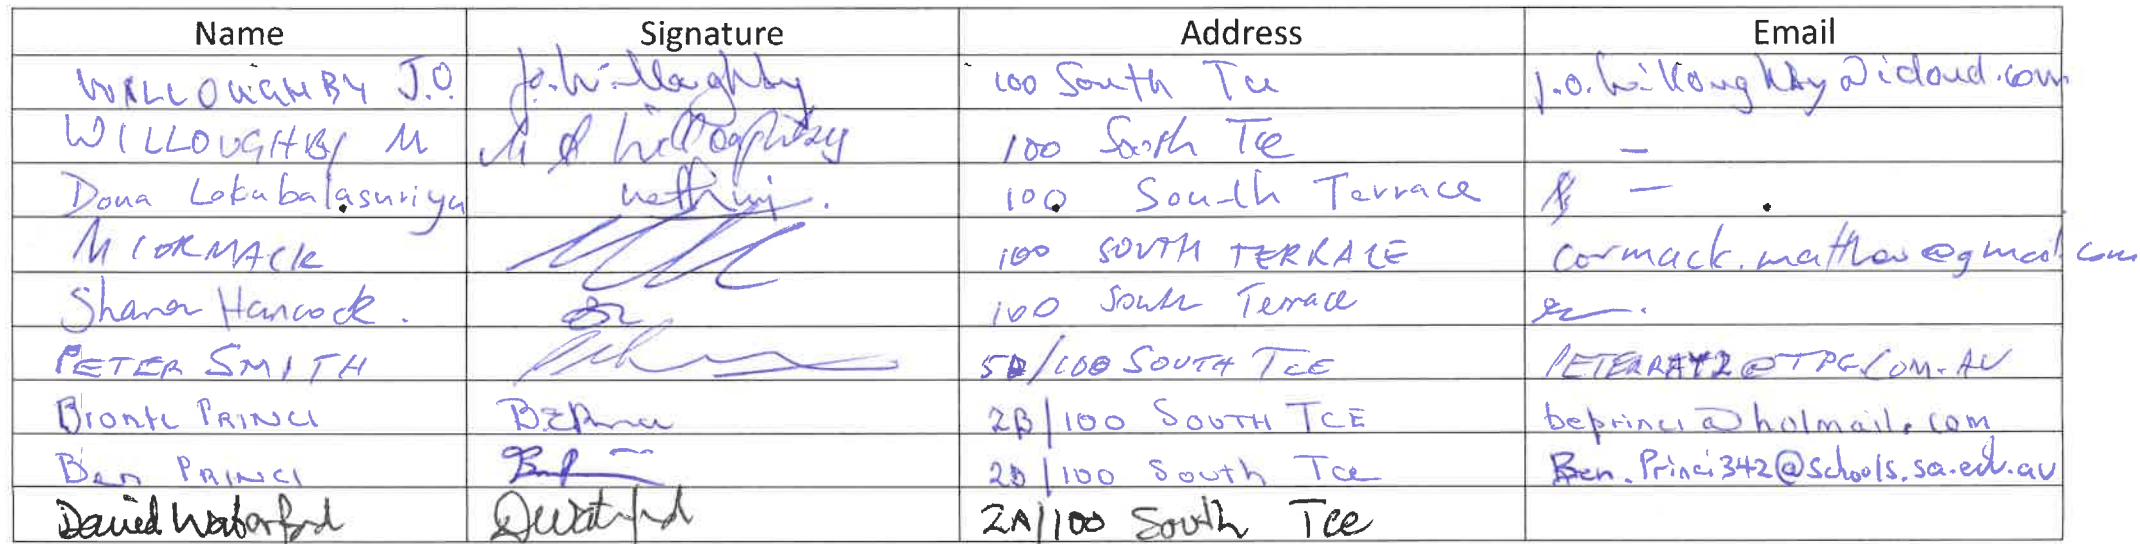 Name Signature Address Email
WILLOUGHBY J.O. J.O. Willoughby 100 South Tce j.o.willoughby@icloud.com
WILLOUGHBY M M Willoughby 100 South Tce -
Dona Lokubalasuriya nethmi. 100 South Terrace -
M CORMACK 100 SOUTH TERRACE cormack.matthew@gmail.com
Hancock. 100 South Terrace
PETER SMITH 100 SOUTH TCE PETERRAY2@TPG.COM.AU
Bronte PRINCI BEPrinci 2B/100 SOUTH TCE beprinci@hotmail.com
Ben PRINCI 2B/100 South Tce Ben.Princi342@schools.sa.edu.au
David Waterford DWaterford 2A/100 South Tce